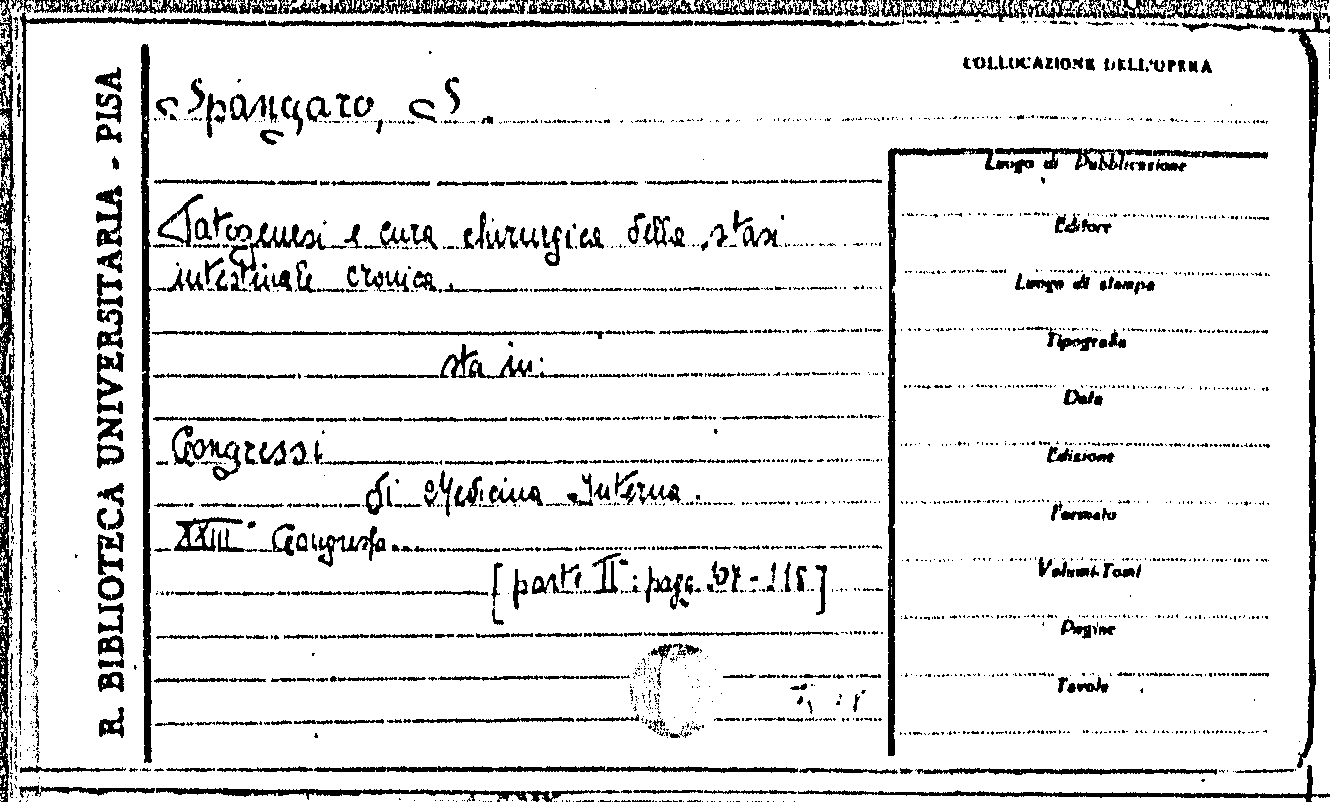 R. BIBLIOTECA UNIVERSITARIA - PISA
COLLOCAZIONE DELL'OPERA
Spangaro, S.
Patogenesi e cura chirurgica della stasi
intestinale cronica.
sta in:
Congressi
di Medicina Interna.
XXIII° Congresso.
[parte II°: pagg.
Luogo di Pubblicazione
Editore
Luogo di stampa
Tipografia
Data
Edizione
Formato
Volumi-Tomi
Pagine
Tavole